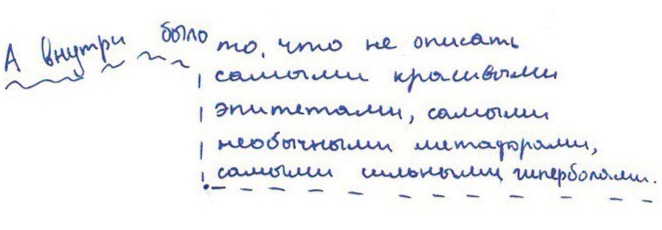 А внутри было то, что не описать
самыми красивыми
эпитетами, самыми
необычными метафорами,
самыми сильными гиперболами.